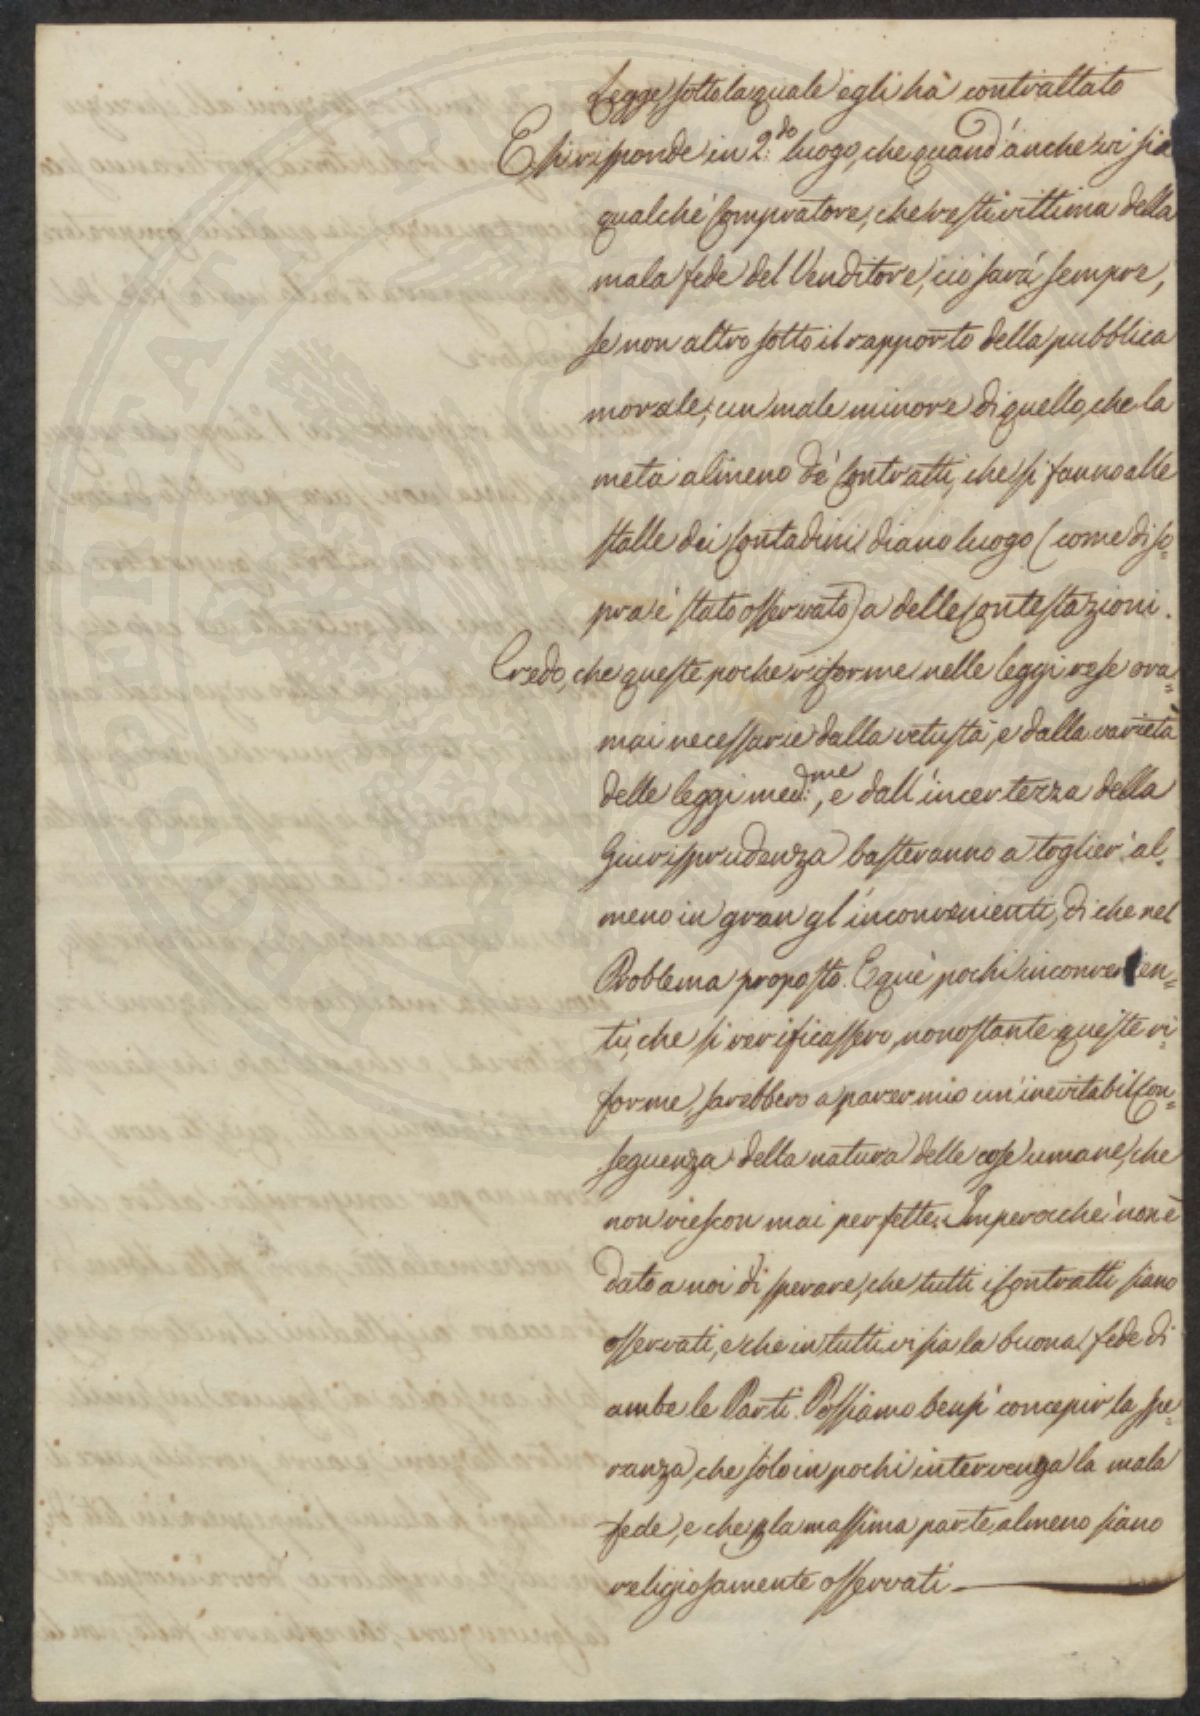 Legge sotto la quale egli hà contrattato
E si risponde in 2.do luogo, che quand'anche vi sia
qualche Compratore, che resti vittima della
mala fede del Venditore, ciò sarà sempre,
se non altro sotto il rapporto della pubblica
morale, un male minore di quello, che la
metà almeno de' Contratti, che si fanno alle
stalle dei Contadini diano luogo (come di so=
pra è stato osservato) a delle Contestazioni.
Credo, che queste poche riforme nelle leggi rese ora=
mai necessarie dalla vetustà, e dalla varietà
delle leggi med:me, e dall'incertezza della
Giurisprudenza basteranno a toglier' al=
meno in gran gl'inconvenienti, di che nel
Problema proposto. E que' pochi inconvenien=
ti, che si verificassero, nonostante queste ri=
forme, sarebbero a parer mio un'inevitabil Con=
seguenza della natura delle cose umane, che
non riescon mai perfette. Imperocchè non è
dato a noi di sperare, che tutti i Contratti siano
osservati, e che in tutti vi sia la buona fede di
ambe le Parti. Possiamo bensì concepir la spe=
ranza, che solo in pochi intervenga la mala
fede, e che la massima parte almeno siano
religiosamente osservati.